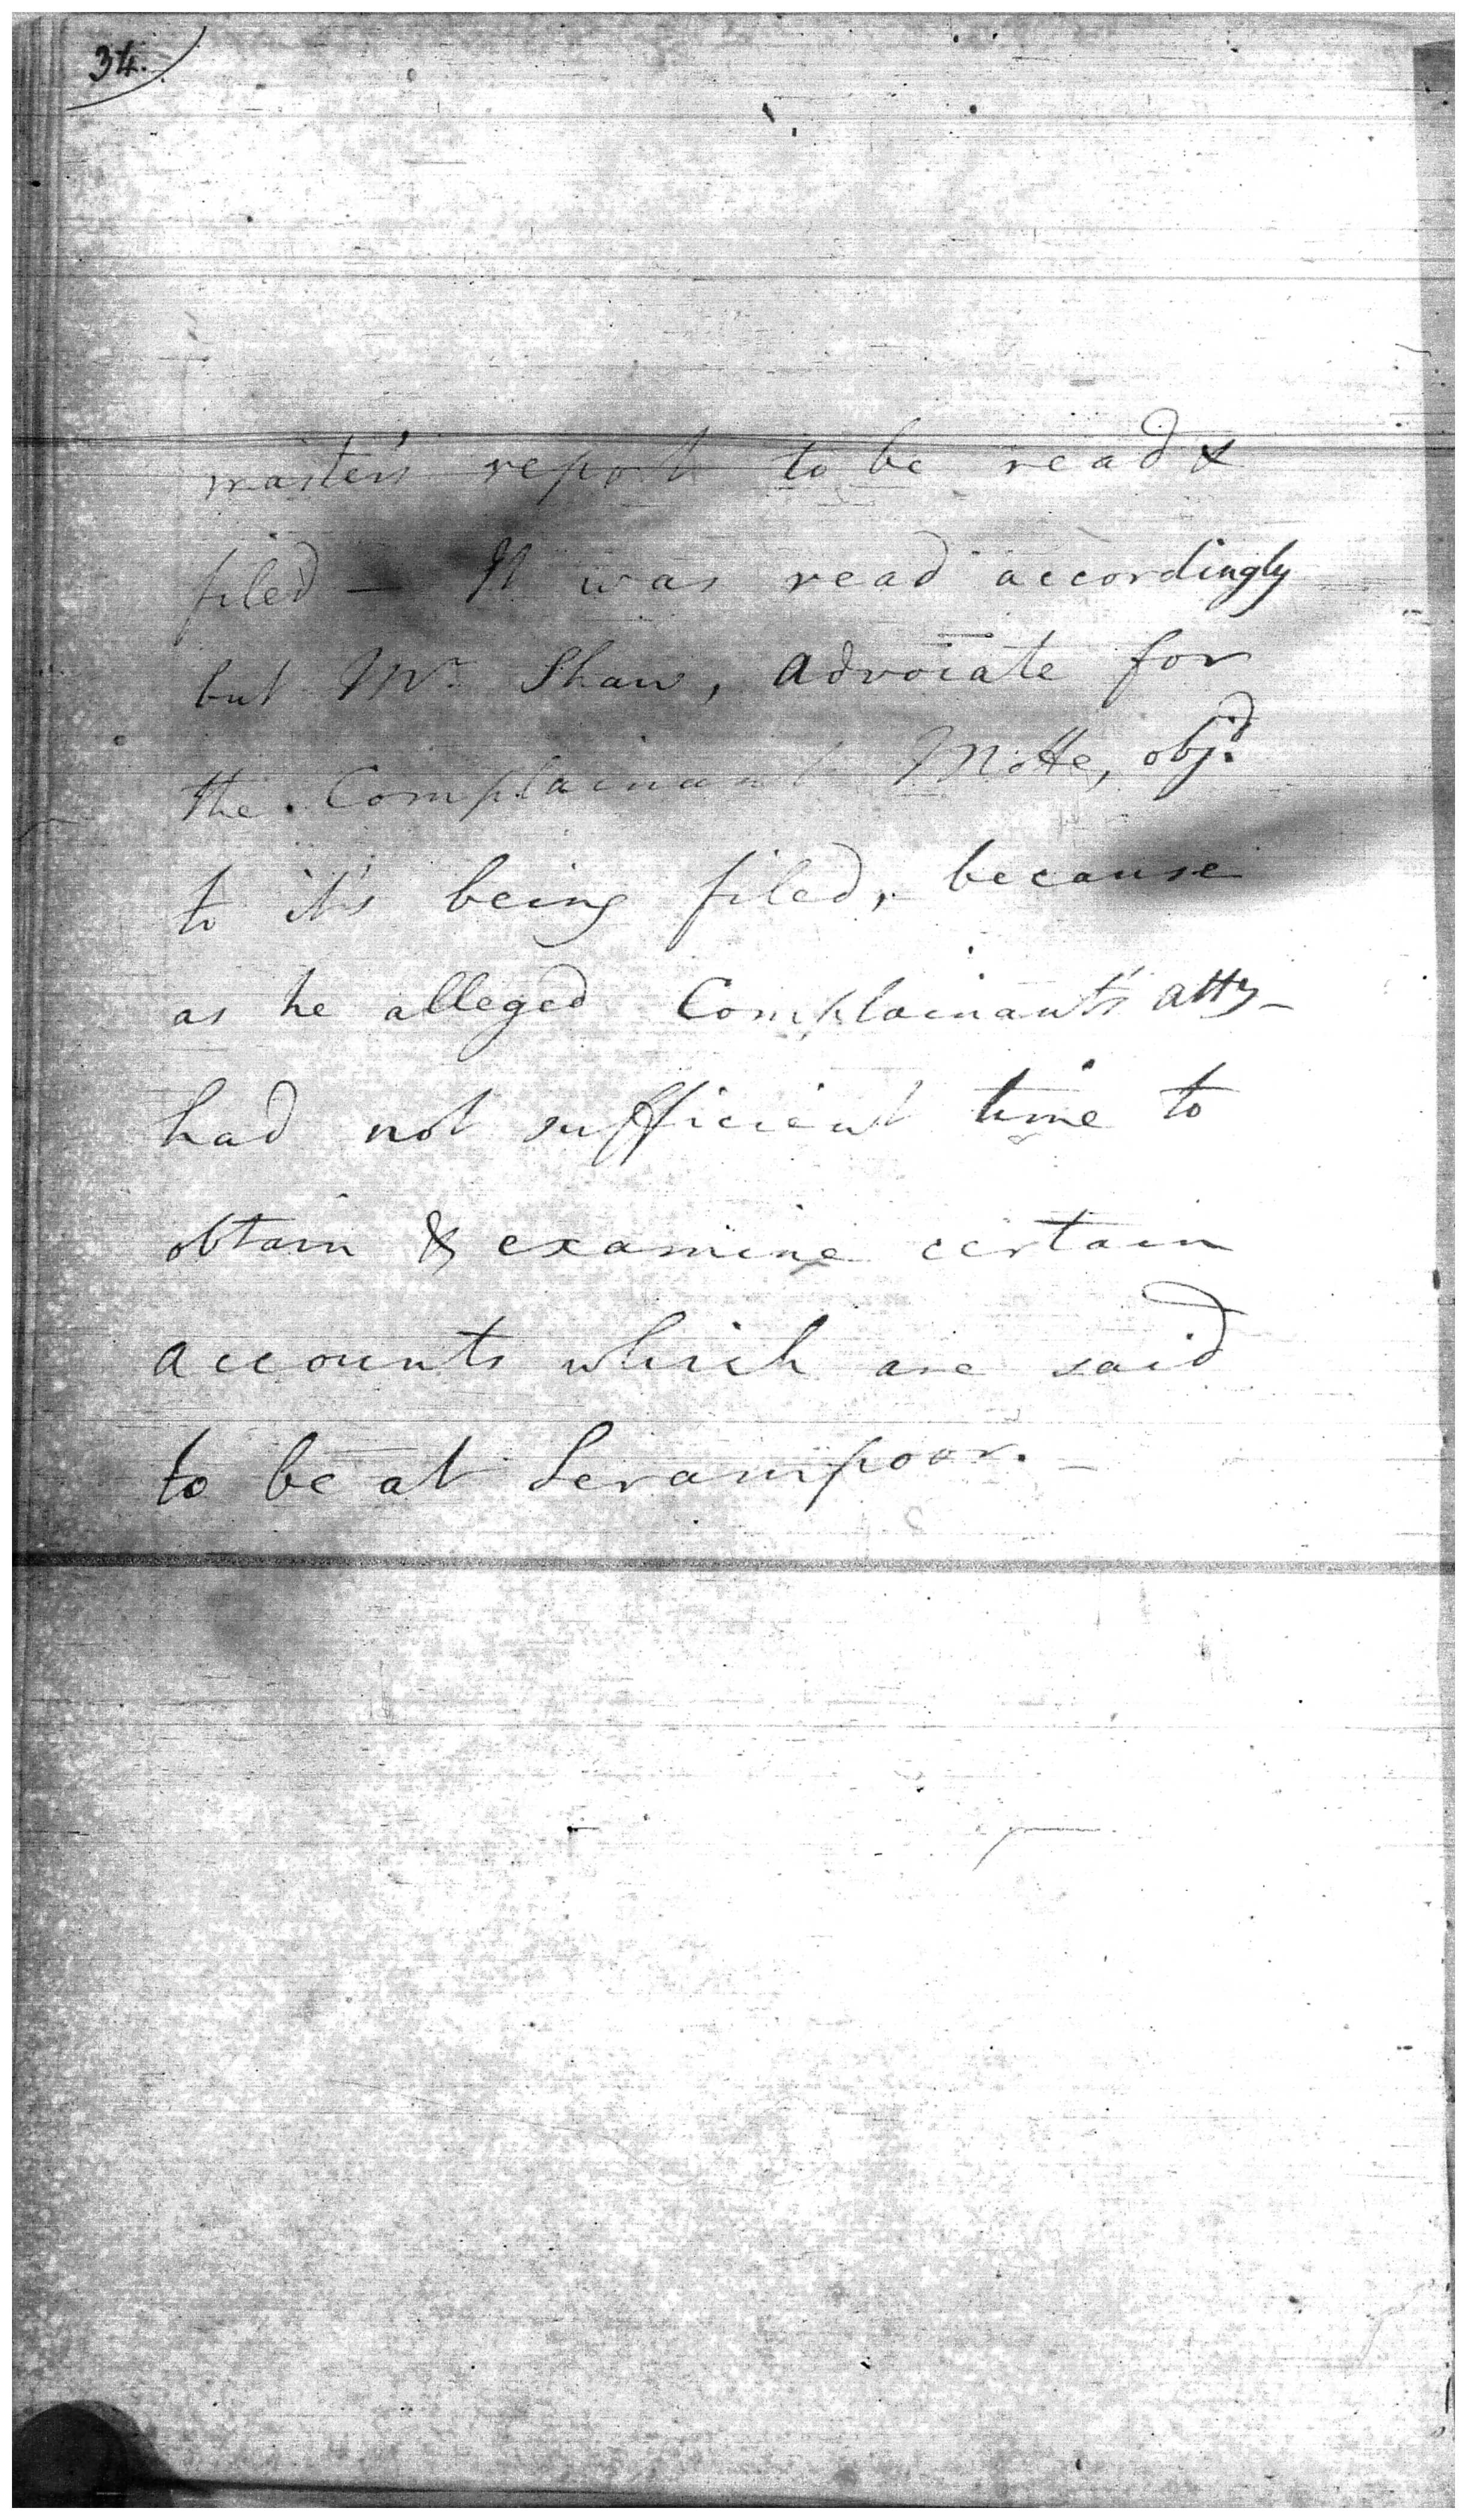 34.
master's report to be read &
filed — It was read accordingly
but Mr. Shaw, Advocate for
the Complainant Motte, obj.d
to it's being filed, because
as he alleged Complainant's atty
had not sufficient time to
obtain & examine certain
accounts which are said
to be at Serampoor. —